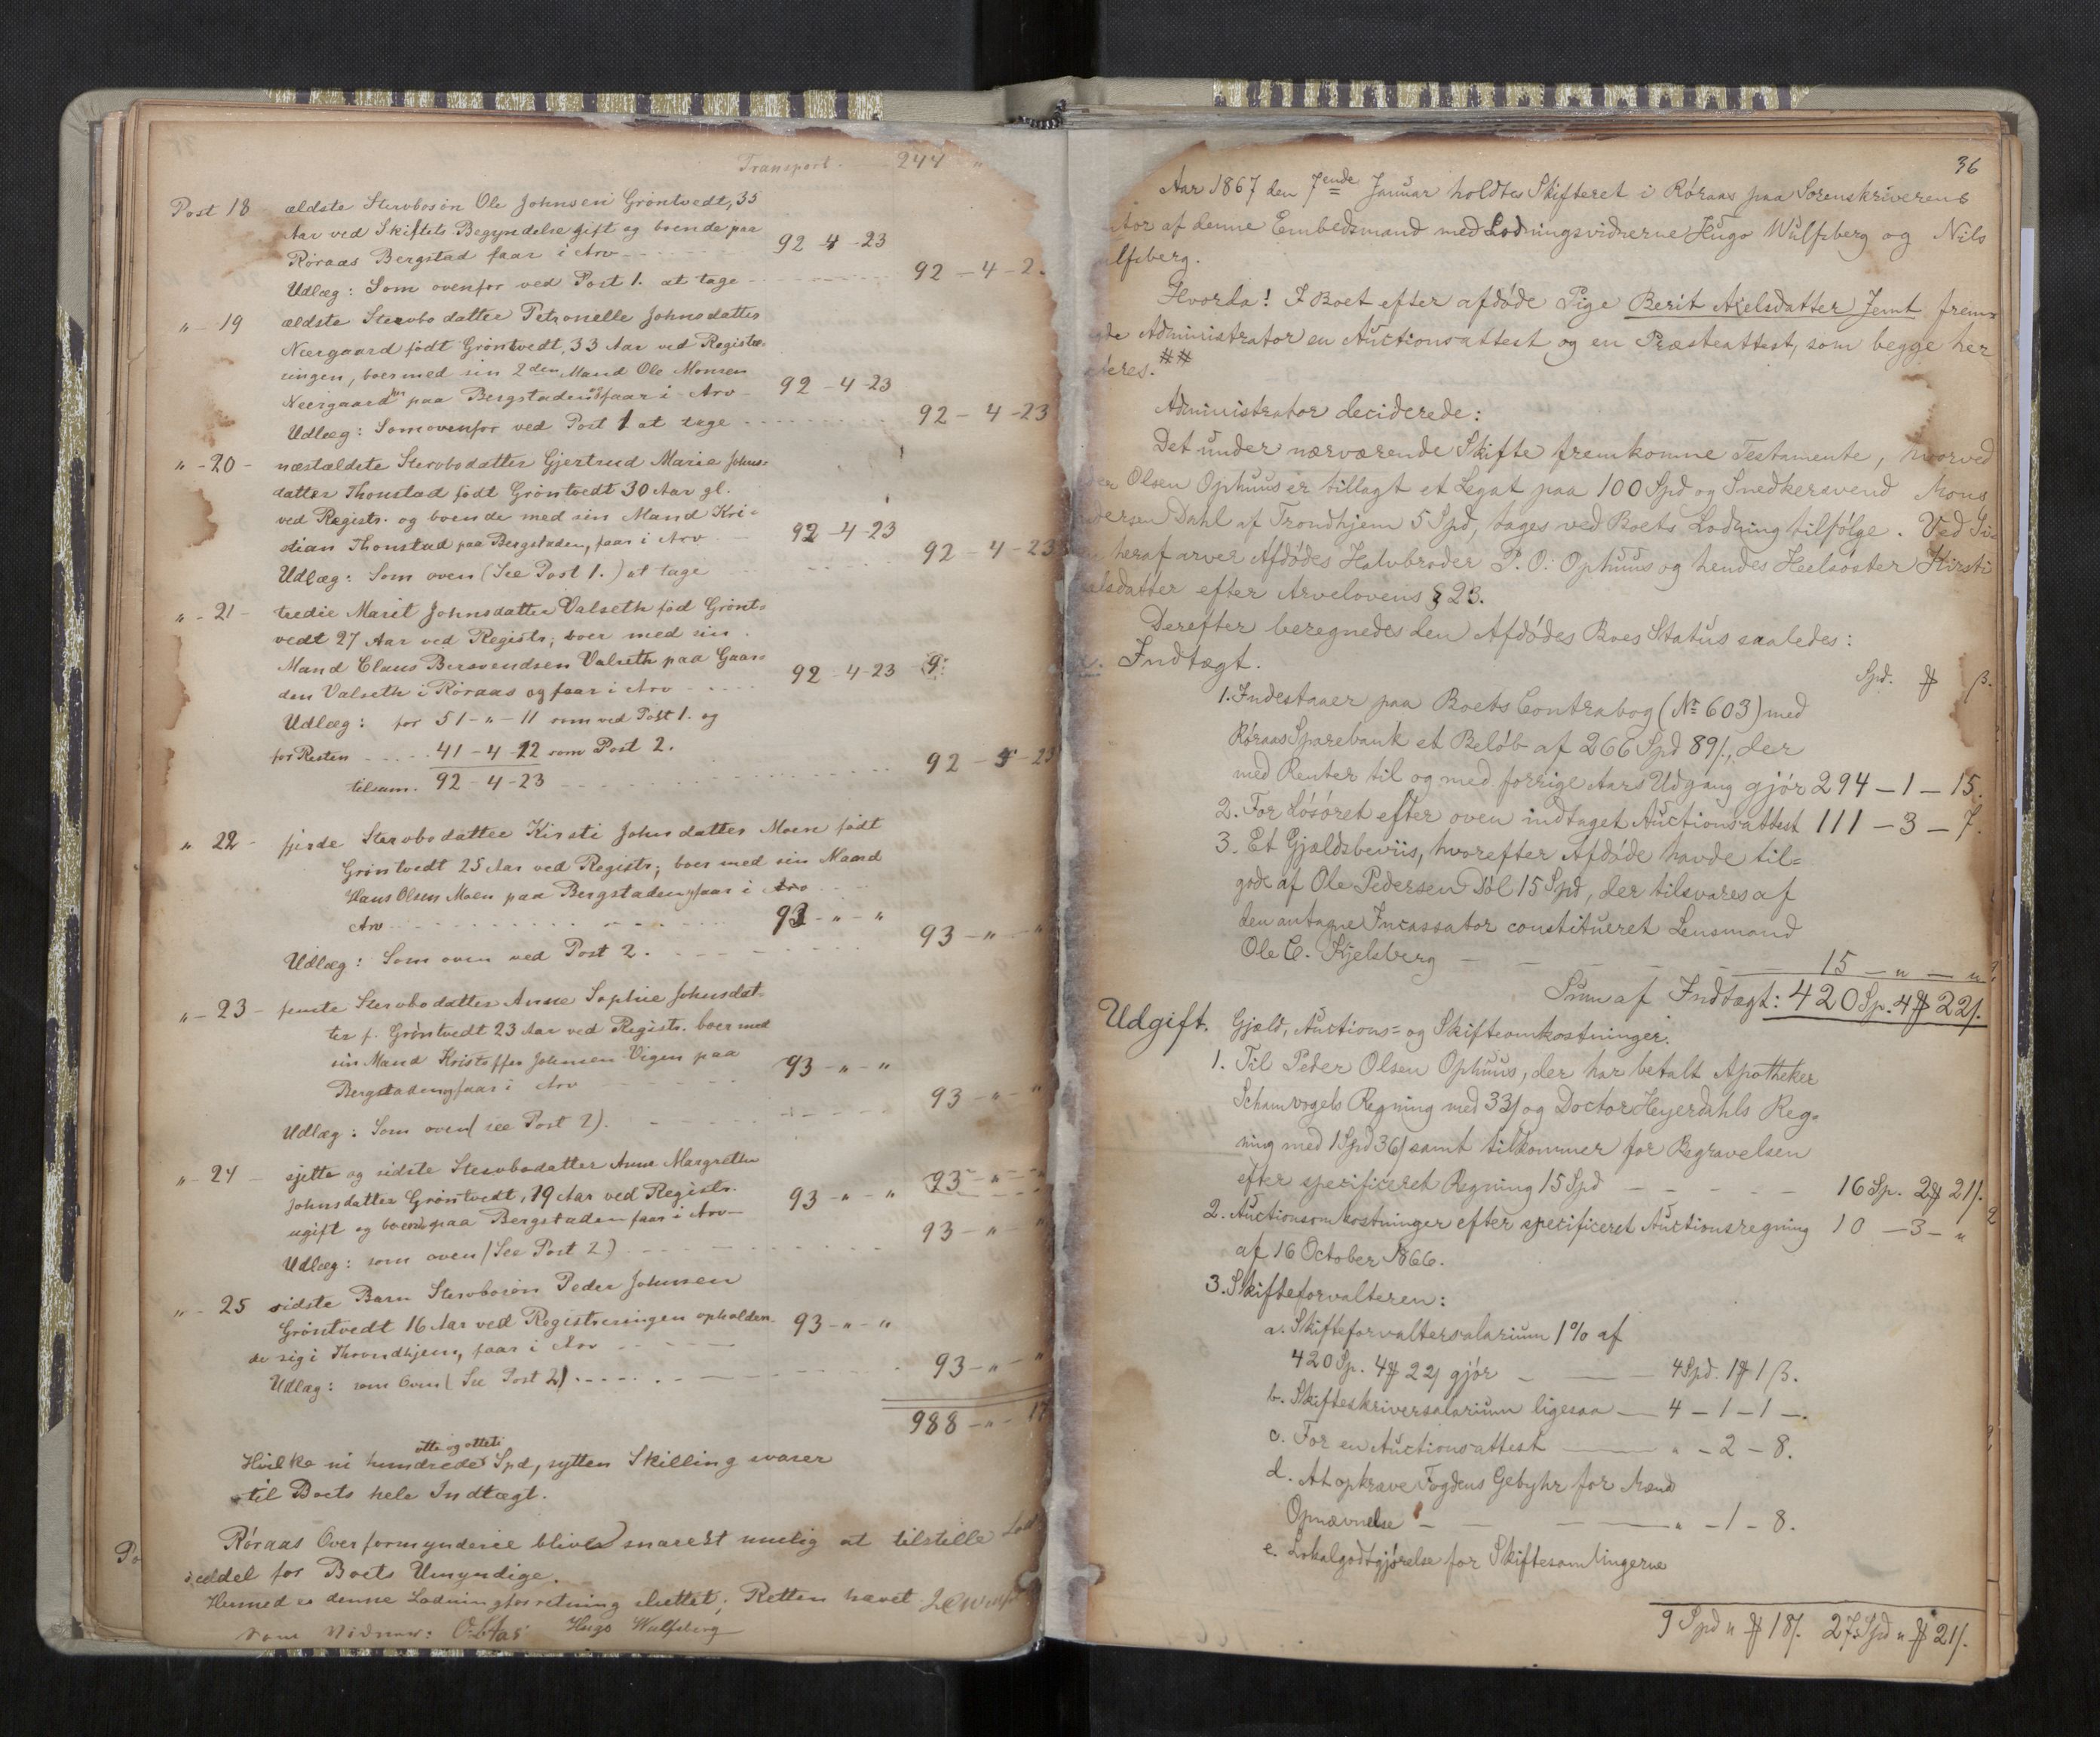 Transport 244 "
Post 18 ældste Stervbosøn Ole Johnsen Grøntvedt, 35
Aar ved Skiftets Begyndelse gift og boende paa
Røraas Bergstad faar i Arv 92-4-23
Udlæg: Som ovenfor ved Post 1. at tage 92-4-2
"-19 ældste Stervbodatter Petronelle Johnsdatter
Neergaard født Grøntvedt, 33 Aar ved Registe-
ringen, boer med sin 2den Mand Ole Monsen
Neergaard paa Bergstaden faar i Arv 92-4-23
Udlæg: Som ovenfor ved Post 1 at tage 92-4-23
"-20- næstældste Stervbodatter Gjertrud Marie Johns-
datter Thonstad født Grøntvedt 30 Aar gl.
ved Registr. og boende med sin Mand Kri-
stian Thonstad paa Bergstaden, faar i Arv 92-4-23
Udlæg: Som oven (See Post 1.) at tage 92-4-23
"-21- tredie Marit Johnsdatter Valseth fød Grønt-
vedt 27 Aar ved Registr; boer med sin
Mand Claus Bersvendsen Valseth paa Gaar-
den Valseth i Røraas og faar i Arv 92-4-23
Udlæg: for 51-"-11 som ved Post 1. og
for Resten 41-4-12 som Post 2.
tilsam. 92-4-23 92-4-23
"22- fjerde Stervbodatter Kirsti Johnsdatter Moen født
Grøntvedt 25 Aar ved Registr; boer med sin Mand
Hans Olsen Moen paa Bergstaden faar i Arv
Arv 93-"-"
Udlæg: Som oven ved Post 2. 93-"-"
"-23- femte Stervbodatter Anne Sophie Johnsdat-
ter f. Grøntvedt 23 Aar ved Registr. boer med
sin Mand Kristoffer Johnsen Vigen paa
Bergstaden faar i Arv 93-"-"
Udlæg: Som oven (see Post 2). 93-"-"
"-24- sjette og sidste Stervbodatter Anne Margrethe
Johnsdatter Grøntvedt, 19 Aar ved Registr. 93-"-" 93-"-"
ugift og boende paa Bergstaden faar i Arv
Udlæg: som oven (See Post 2) 93-"-"
"-25 sidste Barn Stervbosøn Peder Johnsen
Grøntvedt 16 Aar ved Registreringen opholden-
de sig i Throndhjem, faar i Arv 93-"-"
Udlæg: som Oven (See Post 2) 93-"-"
988-"-17
otte og otteti
Hvilke ni hundrede Spd, sytten Skilling svarer
til Boets hele Indtægt.
Røraas Overformynderie bliver snarest mulig at tilstille Lod-
seddel for Boets Umyndige.
Hermed er denne Lodningsforretning sluttet; Retten hævet.
som Vidner: Hugo Wulfsberg
36
Aar 1867 den 7ende Januar holdtes Skifteret i Røraas paa Sorenskriverens
tor af denne Embedsmand med Lodningsvidnerne Hugo Wulfsberg og Nils
lfsberg.
Hvorda! I Boet efter afdøde Pige Berit Axelsdatter Jemt frem-
de Administrator en Auctionsattest og en Præsteattest, som begge her
teres. ##
Administrator deciderede:
Det under nærværende Skifte fremkomne Testamente, hvorved
Olsen Ophuus er tillagt et Legat paa 100 Spd og Snedkersvend Mons
dersen Dahl af Trondhjem 5 Spd, tages ved Boets Lodning tilfølge. Ved Si-
heraf arver Afdødes Halvbroder P. O. Ophuus og hendes Heelsøster Kirsti
elsdatter efter Arvelovens § 23.
Derefter beregnedes den Afdødes Boes Status saaledes:
Indtægt.
Spd. ₰ ß.
1. Indestaaer paa Boets Contrabog (No 603) med
Røraas Sparebank et Beløb af 266 Spd 89ß, der
med Renter til og med forrige Aars Udgang gjør 294-1-15.
2. For Løsøret efter oven indtaget Auctionsattest 111-3-7.
3. Et Gjældsbeviis, hvorefter Afdøde havde til-
gode af Ole Pedersen Døl 15 Spd, der tilsvares af
den antagne Incassator constitueret Lensmand
Ole C. Kjelsberg 15-"-"
Sum af Indtægt: 420 Sp. 4₰ 22ß.
Udgift. Gjæld, Auctions- og Skifteomkostninger.
1. Til Peder Olsen Ophuus, der har betalt Apotheker
Schamvogels Regning med 33ß og Doctor Heyerdahls Reg-
ning med 1 Spd 36ß samt tilkommer for Begravelsen
efter specificeret Regning 15 Spd 16 Sp. 2₰ 21ß.
2. Auctionsomkostninger efter specificeret Auctionsregning 10-3-"
af 16 October 1866.
3. Skifteforvalteren:
a. Skifteforvaltersalarium 1% af
420 Sp. 4₰ 22ß gjør 4 Spd. 1₰ 1ß.
b. Skifteskriversalarium ligesaa 4-1-1-.
c. For en Auctionsattest "-2-8.
d. At opkræve Fogdens Gebyhr for Mænd
Opnævnelse "-1-8.
e. Lokalgodtgjørelse for Skiftesamlingerne
9 Spd " ₰ 18ß. 27 Spd " ₰ 21ß.